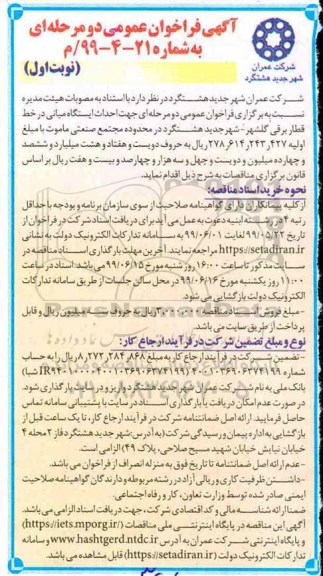 آگهی فراخوان عمومی دو مرحله‌ای
به شماره ۲۱-۴-۹۹/م
(نوبت اول)
شرکت عمران
شهر جدید هشتگرد
شرکت عمران شهر جدید هشتگرد در نظر دارد با استناد به مصوبات هیئت مدیره
نسبت به برگزاری فراخوان عمومی دو مرحله‌ای جهت احداث ایستگاه میانی در خط
قطار برقی گلشهر - شهر جدید هشتگرد در محدوده مجتمع صنعتی ماموت با مبلغ
اولیه ۲۷۸,۶۱۴,۲۴۳,۴۲۷ ریال به حروف دویست و هفتاد و هشت میلیارد و ششصد
و چهارده میلیون و دویست و چهل و سه هزار و چهارصد و بیست و هفت ریال بر اساس
قانون برگزاری مناقصات به شرح ذیل اقدام نماید.
نحوه خرید اسناد مناقصه:
از کلیه پیمانکاران دارای گواهینامه صلاحیت از سوی سازمان برنامه و بودجه با حداقل
رتبه ۴ در رشته ابنیه دعوت به عمل می‌آید برای دریافت اسناد شرکت در فراخوان از
تاریخ ۹۹/۰۵/۲۲ لغایت ۹۹/۰۶/۰۱ به سامانه تدارکات الکترونیک دولت به نشانی
https://setadiran.ir مراجعه نمایند. آخرین مهلت بارگذاری اسناد مناقصه در
سایت مذکور تا ساعت ۱۶:۰۰ روز شنبه مورخ ۹۹/۰۶/۱۵ می باشد. اسناد در ساعت
۱۱:۰۰ روز یکشنبه مورخ ۹۹/۰۶/۱۶ در محل سالن جلسات از طریق سامانه تدارکات
الکترونیک دولت بازگشایی می شود.
- مبلغ فروش اسناد مناقصه ریال به حروف میلیون ریال و قابل
پرداخت از طریق سایت می باشد.
نوع و مبلغ تضمین شرکت در فرآیند ارجاع کار:
- تضمین شرکت در فرآیند ارجاع کار به مبلغ ۸,۲۷۲,۲۸۴,۸۶۸ ریال را به حساب
شماره (شبا
بانک ملی به نام شرکت عمران شهر جدید هشتگرد واریز و در سامانه بارگذاری شود.
در صورت عدم امکان دریافت یا بارگذاری اسناد در سایت با پشتیبانی سامانه تماس
حاصل فرمایید. ارائه اصل ضمانتنامه شرکت در فرآیند ارجاع کار، تا یک ساعت قبل از
بازگشایی به اداره پیمان و رسیدگی شرکت (به آدرس: شهر جدید هشتگرد فاز ۲ محله ۴
خیابان نیایش خیابان شهید مسیح صلاحی، پلاک ۴۹) الزامی است.
- عدم ارائه اصل ضمانتنامه تا تاریخ فوق به منزله انصراف از فراخوان می باشد.
- داشتن ظرفیت کاری و ریالی آزاد در رشته مربوطه و دارندگان گواهینامه صلاحیت
ایمنی صادر شده توسط وزارت تعاون، کار و رفاه اجتماعی.
ضمنا ارائه شناسه ملی و کد اقتصادی شرکت، جهت دریافت اسناد الزامی می باشد.
آگهی این مناقصه در پایگاه اینترنتی ملی مناقصات (https://iets.mporg.ir/)
و پایگاه اینترنتی شرکت عمران به آدرس www.hashtgerd.ntdc.ir و سامانه
تدارکات الکترونیک دولت (https://setadiran.ir) قابل مشاهده می باشد.